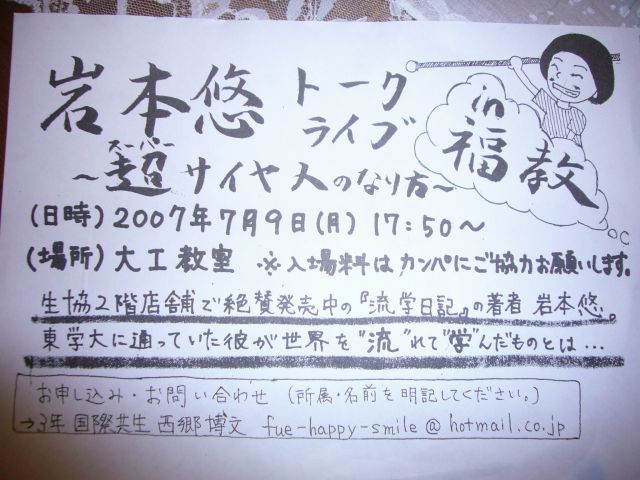 岩本悠 トークライブ in 福教
～超サイヤ人のなり方～
スーパー
(日時) 2007年7月9日(月) 17:50～
(場所) 大工教室 ※入場料はカンパにご協力お願いします。
生協2階店舗で絶賛発売中の『流学日記』の著者 岩本悠。
東学大に通っていた彼が世界を"流"れて"学"んだものとは…
お申し込み・お問い合わせ (所属・名前を明記してください。)
→3年 国際共生 西郷博文 fue-happy-smile@hotmail.co.jp